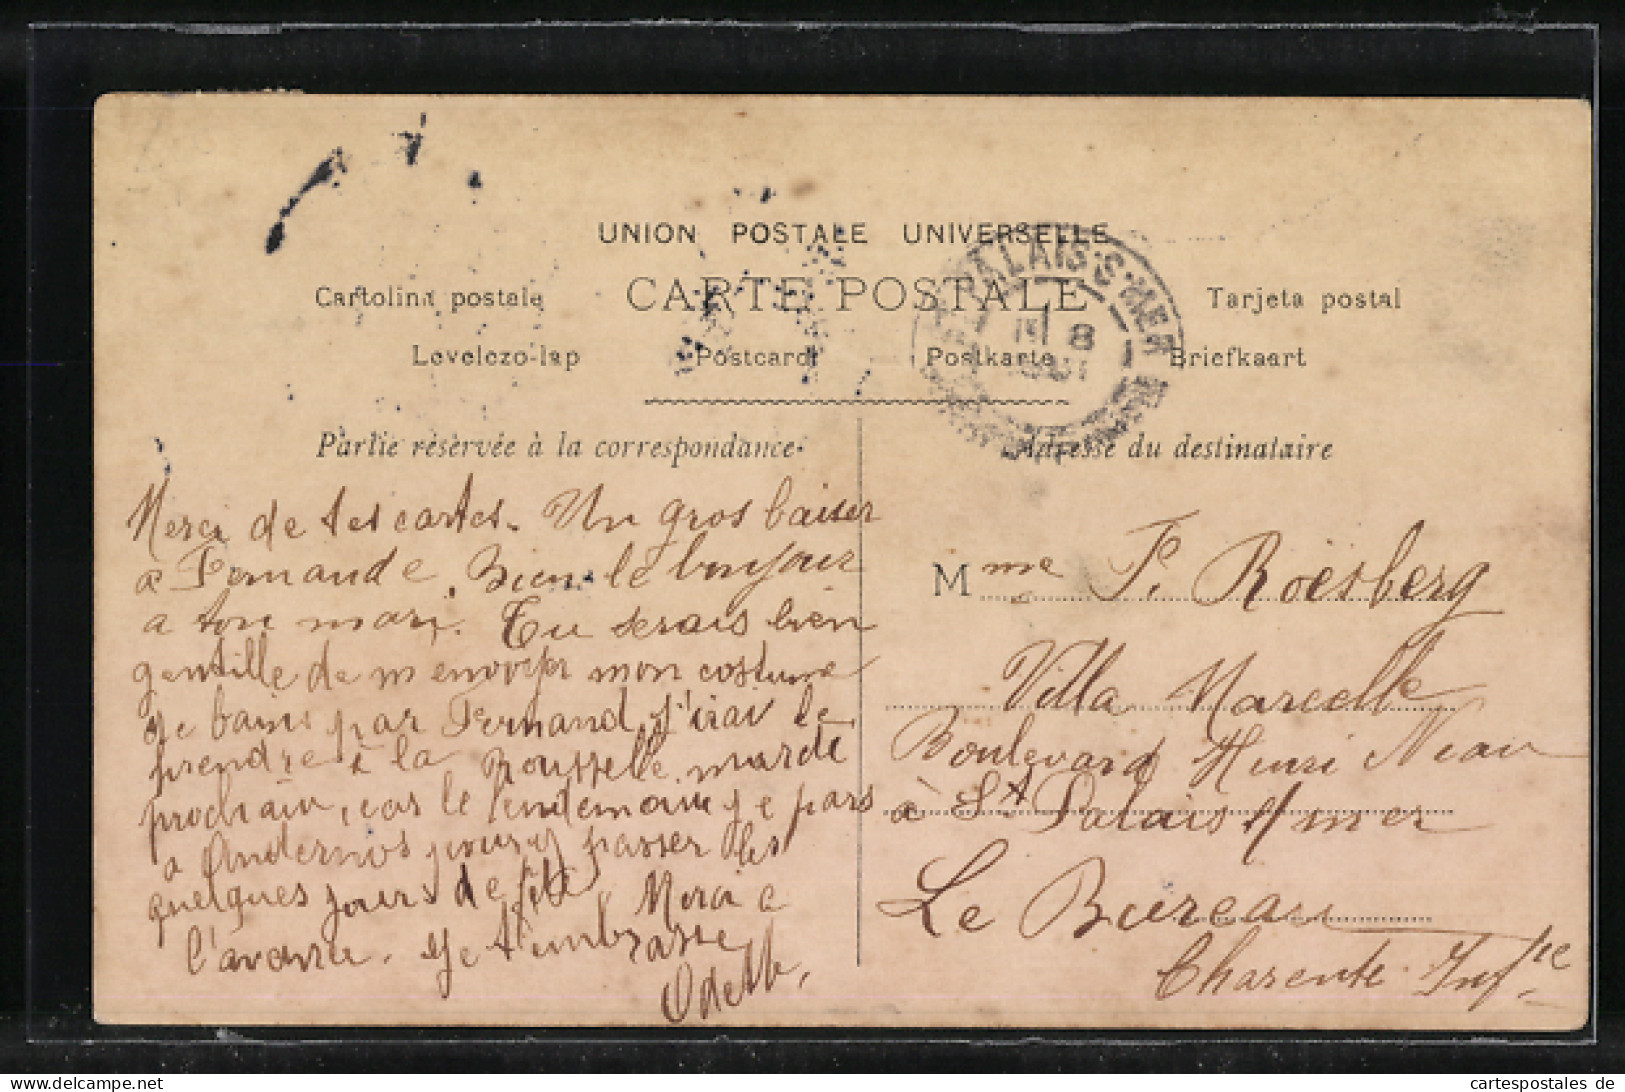 UNION POSTALE UNIVERSELLE
CARTE POSTALE
Cartolina postale
Tarjeta postal
Levelezo-lap
Postcard
Postkarte
Briefkaart
Partie réservée à la correspondance
Adresse du destinataire
PALAIS-S-MER
8
Merci de tes cartes. Un gros baiser
a Fernande. Bien le bonjour
a ton mari. Tu serais bien
gentille de m'envoyer mon costume
de bains par Fernand, j'irai le
prendre à la Rousselle mardi
prochain, car le lendemain je pars
a Andernos pour y passer les
quelques jours de fête. Merci a
l'avance. Je t'embrasse
Odette.
Mme F. Roësberg
Villa Marcelle
Boulevard Henri Neau
à St Palais s/ mer
Le Bureau
Charente Infre
cartespostales de